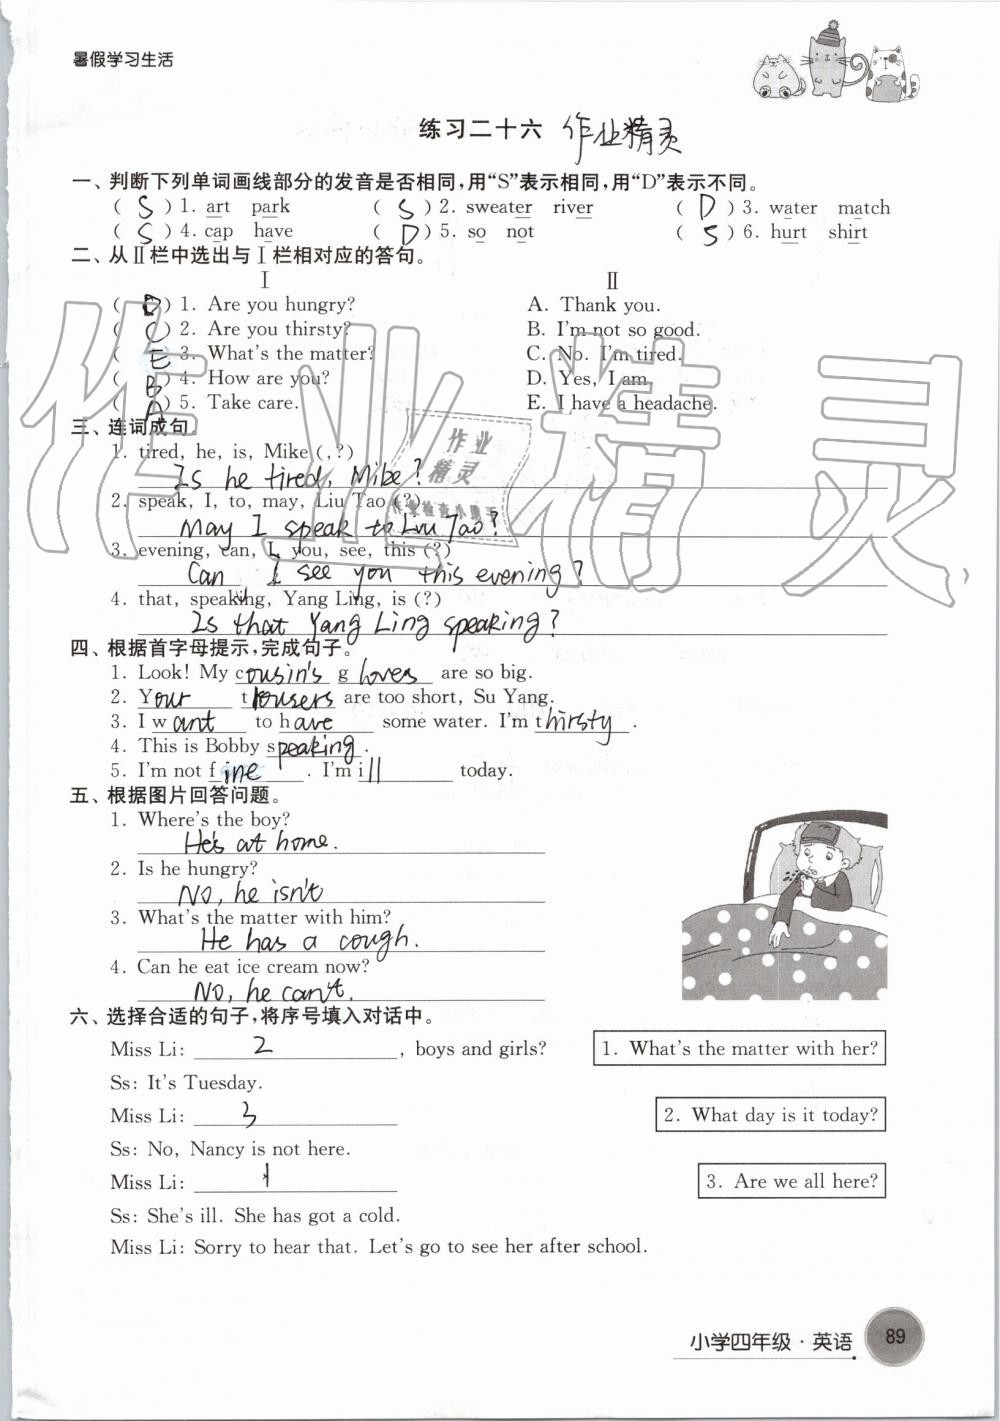 暑假学习生活
练习二十六 作业精灵
一、判断下列单词画线部分的发音是否相同,用“S”表示相同,用“D”表示不同。
( S ) 1. art park ( S ) 2. sweater river ( D ) 3. water match
( S ) 4. cap have ( D ) 5. so not ( S ) 6. hurt shirt
二、从Ⅱ栏中选出与Ⅰ栏相对应的答句。
Ⅰ Ⅱ
( D ) 1. Are you hungry? A. Thank you.
( C ) 2. Are you thirsty? B. I'm not so good.
( E ) 3. What's the matter? C. No. I'm tired.
( B ) 4. How are you? D. Yes, I am.
( A ) 5. Take care. E. I have a headache.
三、连词成句。
1. tired, he, is, Mike (,?)
Is he tired, Mike?
2. speak, I, to, may, Liu Tao (?)
May I speak to Liu Tao?
3. evening, can, I, you, see, this (?)
Can I see you this evening?
4. that, speaking, Yang Ling, is (?)
Is that Yang Ling speaking?
四、根据首字母提示,完成句子。
1. Look! My cousin's gloves are so big.
2. Your trousers are too short, Su Yang.
3. I want to have some water. I'm thirsty.
4. This is Bobby speaking.
5. I'm not fine. I'm ill today.
五、根据图片回答问题。
1. Where's the boy?
He's at home.
2. Is he hungry?
No, he isn't
3. What's the matter with him?
He has a cough.
4. Can he eat ice cream now?
No, he can't.
六、选择合适的句子,将序号填入对话中。
Miss Li: 2, boys and girls? 1. What's the matter with her?
Ss: It's Tuesday.
Miss Li: 3 2. What day is it today?
Ss: No, Nancy is not here.
Miss Li: 1 3. Are we all here?
Ss: She's ill. She has got a cold.
Miss Li: Sorry to hear that. Let's go to see her after school.
小学四年级·英语 89
作业精灵
作业
精灵
作业检查小助手